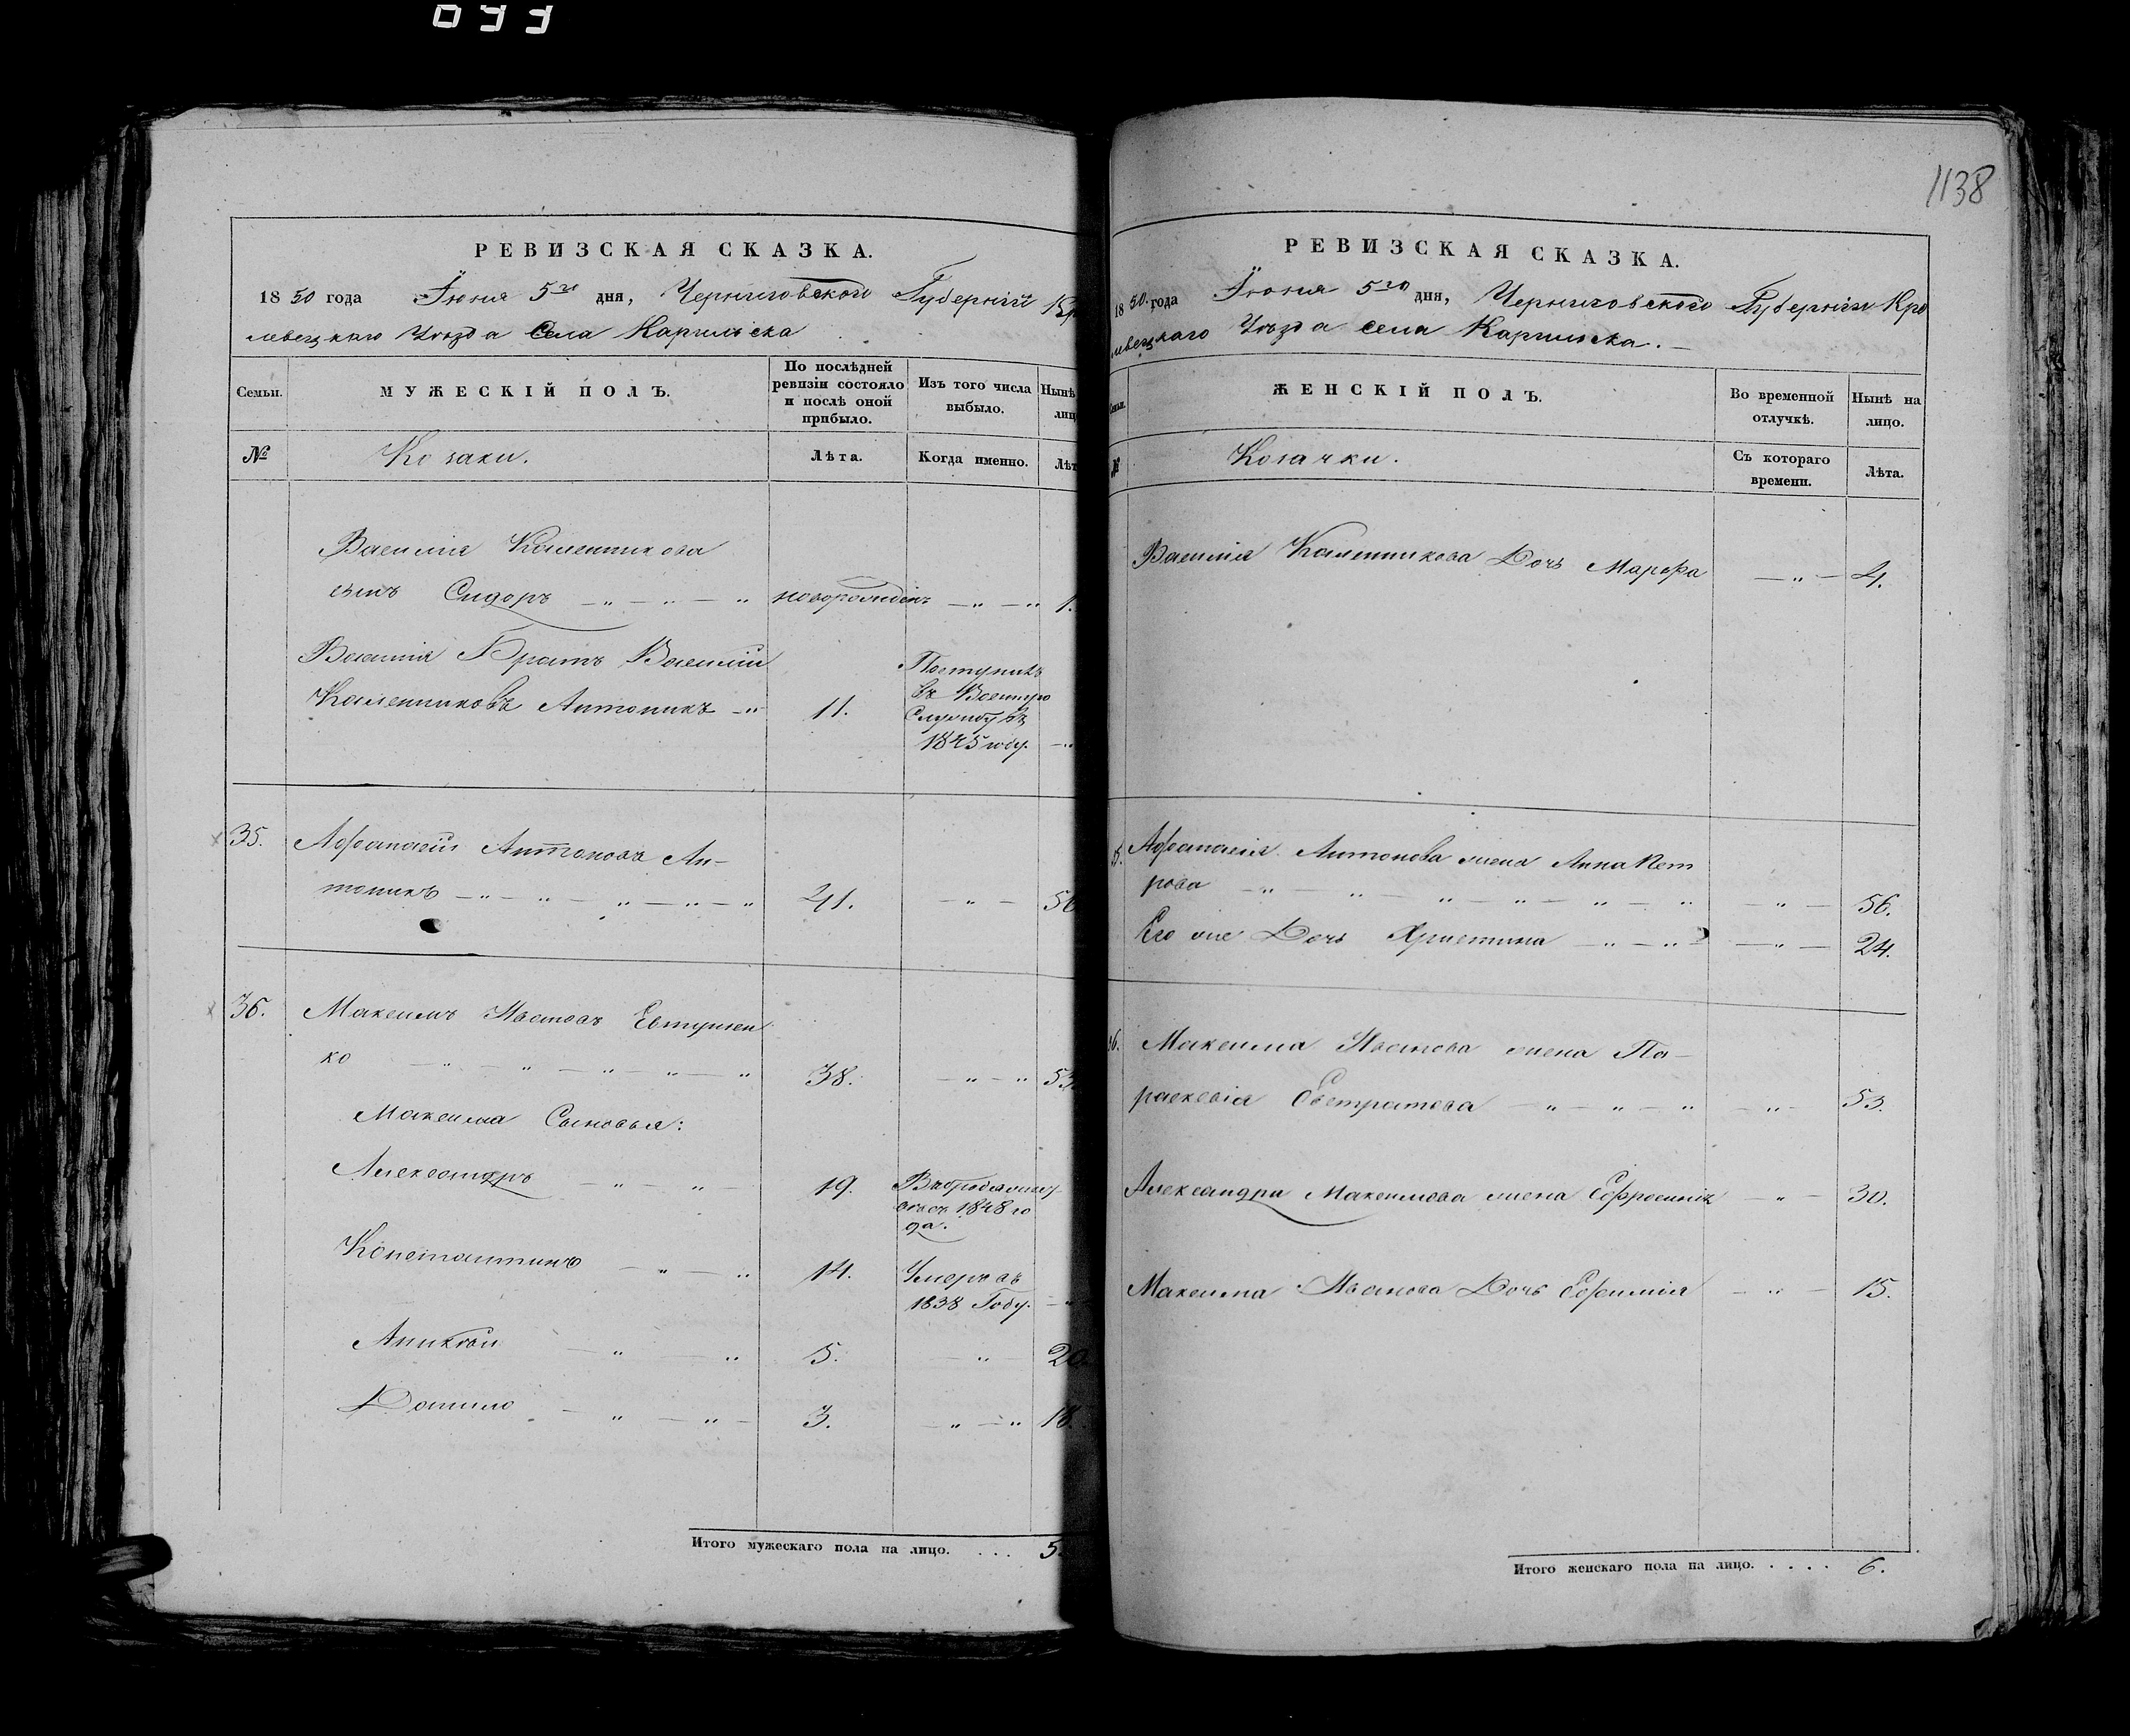 1138
РЕВИЗСКАЯ СКАЗКА.
1850 года Іюня 5го дня, Черниговской Губерніи Кро
левецкаго Уѣзда Села Каригильска
Семьи.
МУЖЕСКІЙ ПОЛЪ.
По послѣдней ревизіи состояло и послѣ оной прибыло.
Изъ того числа выбыло.
Нынѣ лиц
№
Козаки.
Лѣта.
Когда именно.
Лѣт
Василія
сынъ Сидоръ новорожденъ 1.
Братъ Василій
Антоникъ 11. Поступилъ
въ Военную
Службу въ
1845 году.
35. Афанасій Антоновъ Ан-
тоникъ 41. 56
36. Максимъ Ивановъ Евтушен
ко 38. 53
Максима Сыновья:
Александръ 19. Въ
съ 1848 го
да.
Константинъ 14. Умеръ въ
1838 Году.
5. 20
Данило 3. 18.
Итого мужескаго пола на лицо. . . . 5.
РЕВИЗСКАЯ СКАЗКА.
1850. года Іюня 5го дня, Черниговской Губерніи Кро
левецкаго Уѣзда села
Семьи.
ЖЕНСКІЙ ПОЛЪ.
Во временной отлучкѣ.
Нынѣ на лицо.
№
Козачки.
Съ котораго времени.
Лѣта.
Василія Дочь Марфа 4.
5. Афанасія Антонова жена Анна Пет
рова 56.
Его же Дочь Христина 24.
36. Максима Иванова жена Па-
раскевія Евстратова 53.
Александра Максимова жена Ефросинія 30.
Максима Иванова Дочь Ефимія 15.
Итого женскаго пола на лицо. . . . . 6.